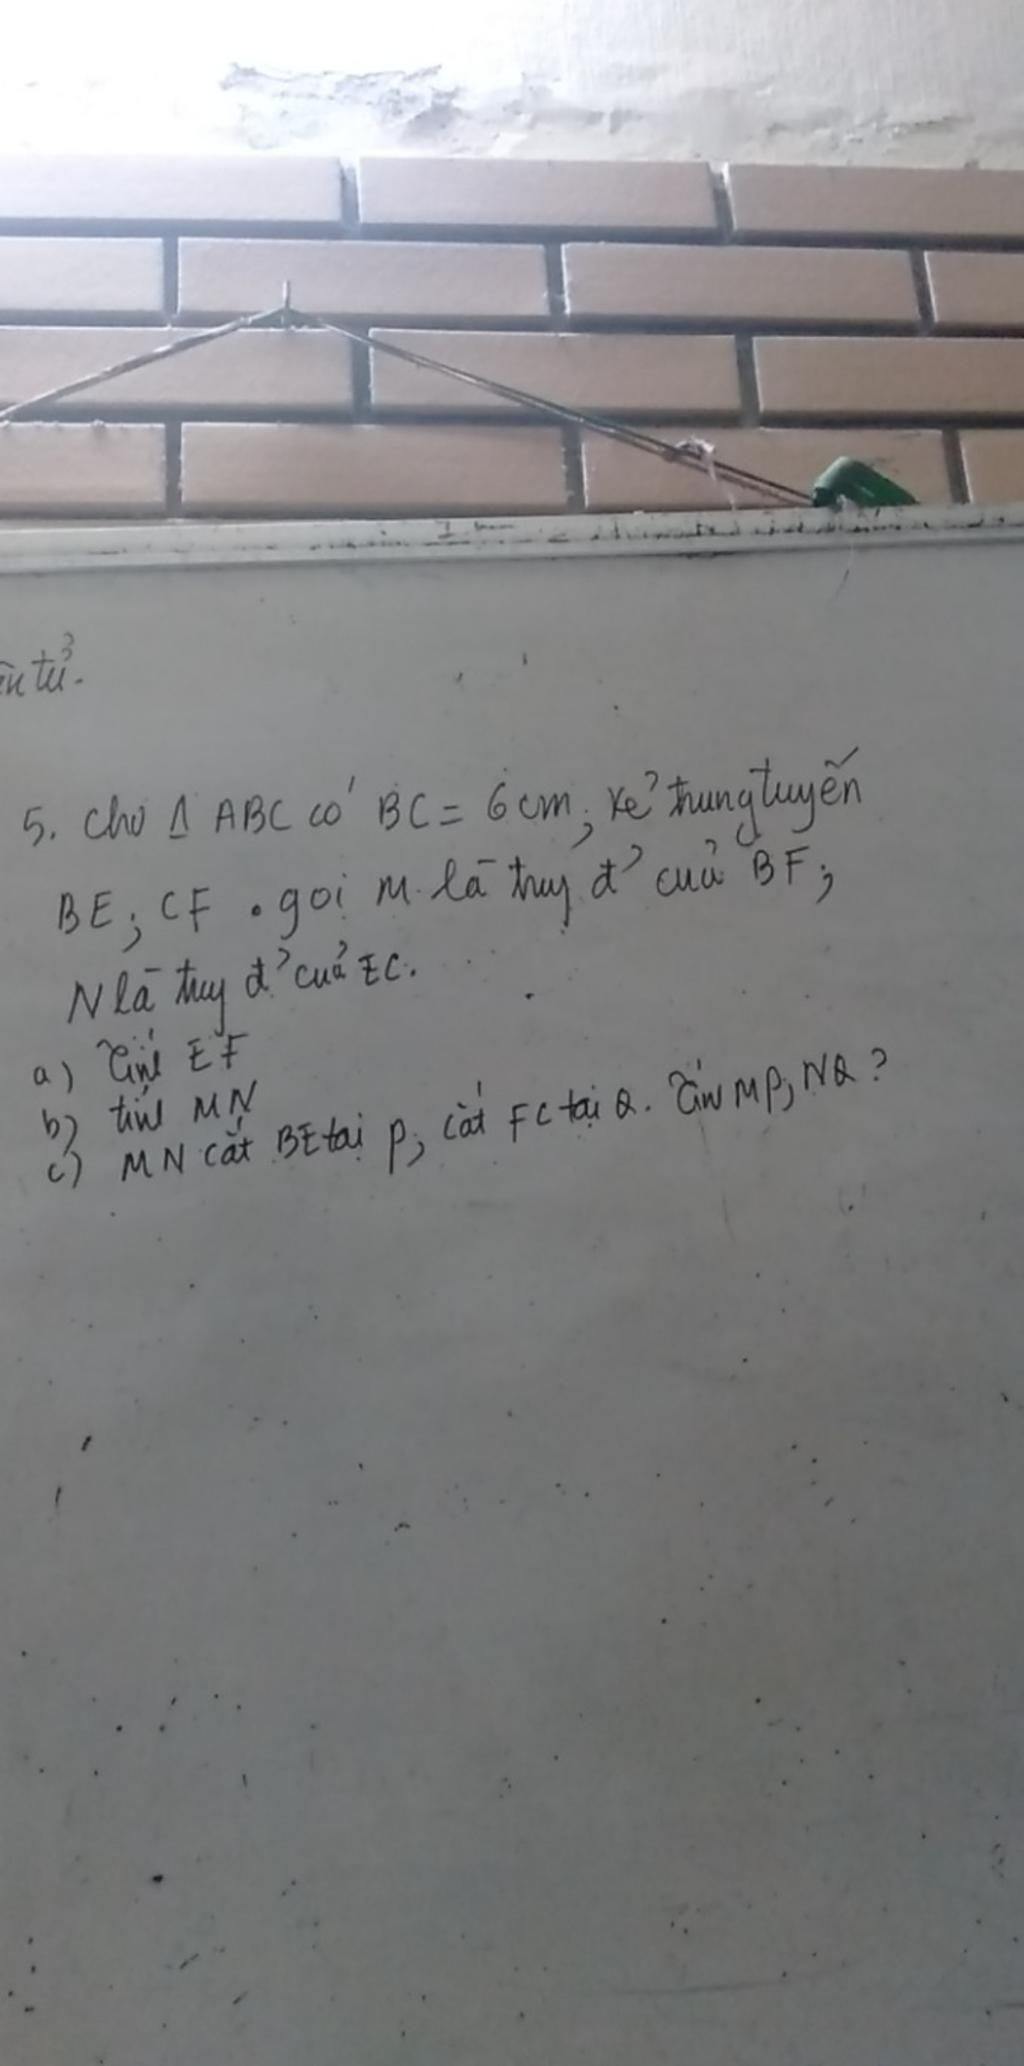 tử.
5. Cho Δ ABC có BC = 6 cm; kẻ trung tuyến
BE; CF. gọi M là trug đ' của BF;
N là trug đ' của EC.
a) Tính EF
b) tính MN
c) MN cắt BE tại P, cắt FC tại Q. Tính MP, NQ?